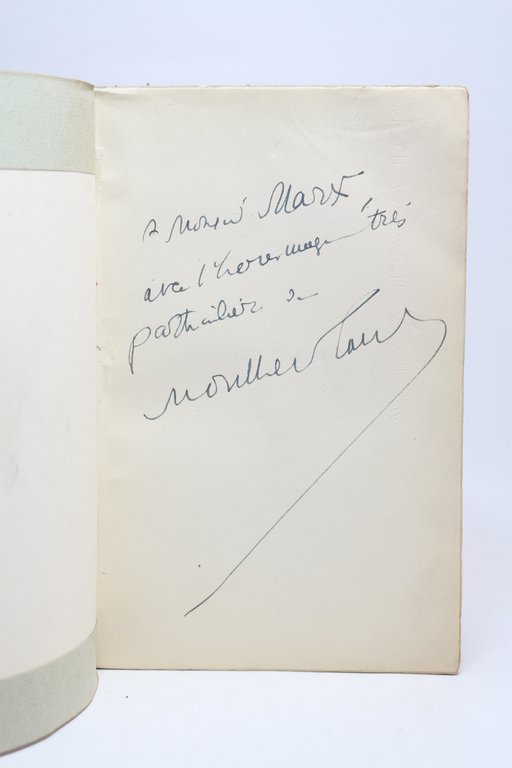 à Monsieur Marx
avec l'hommage très
particulier de
Montherlant